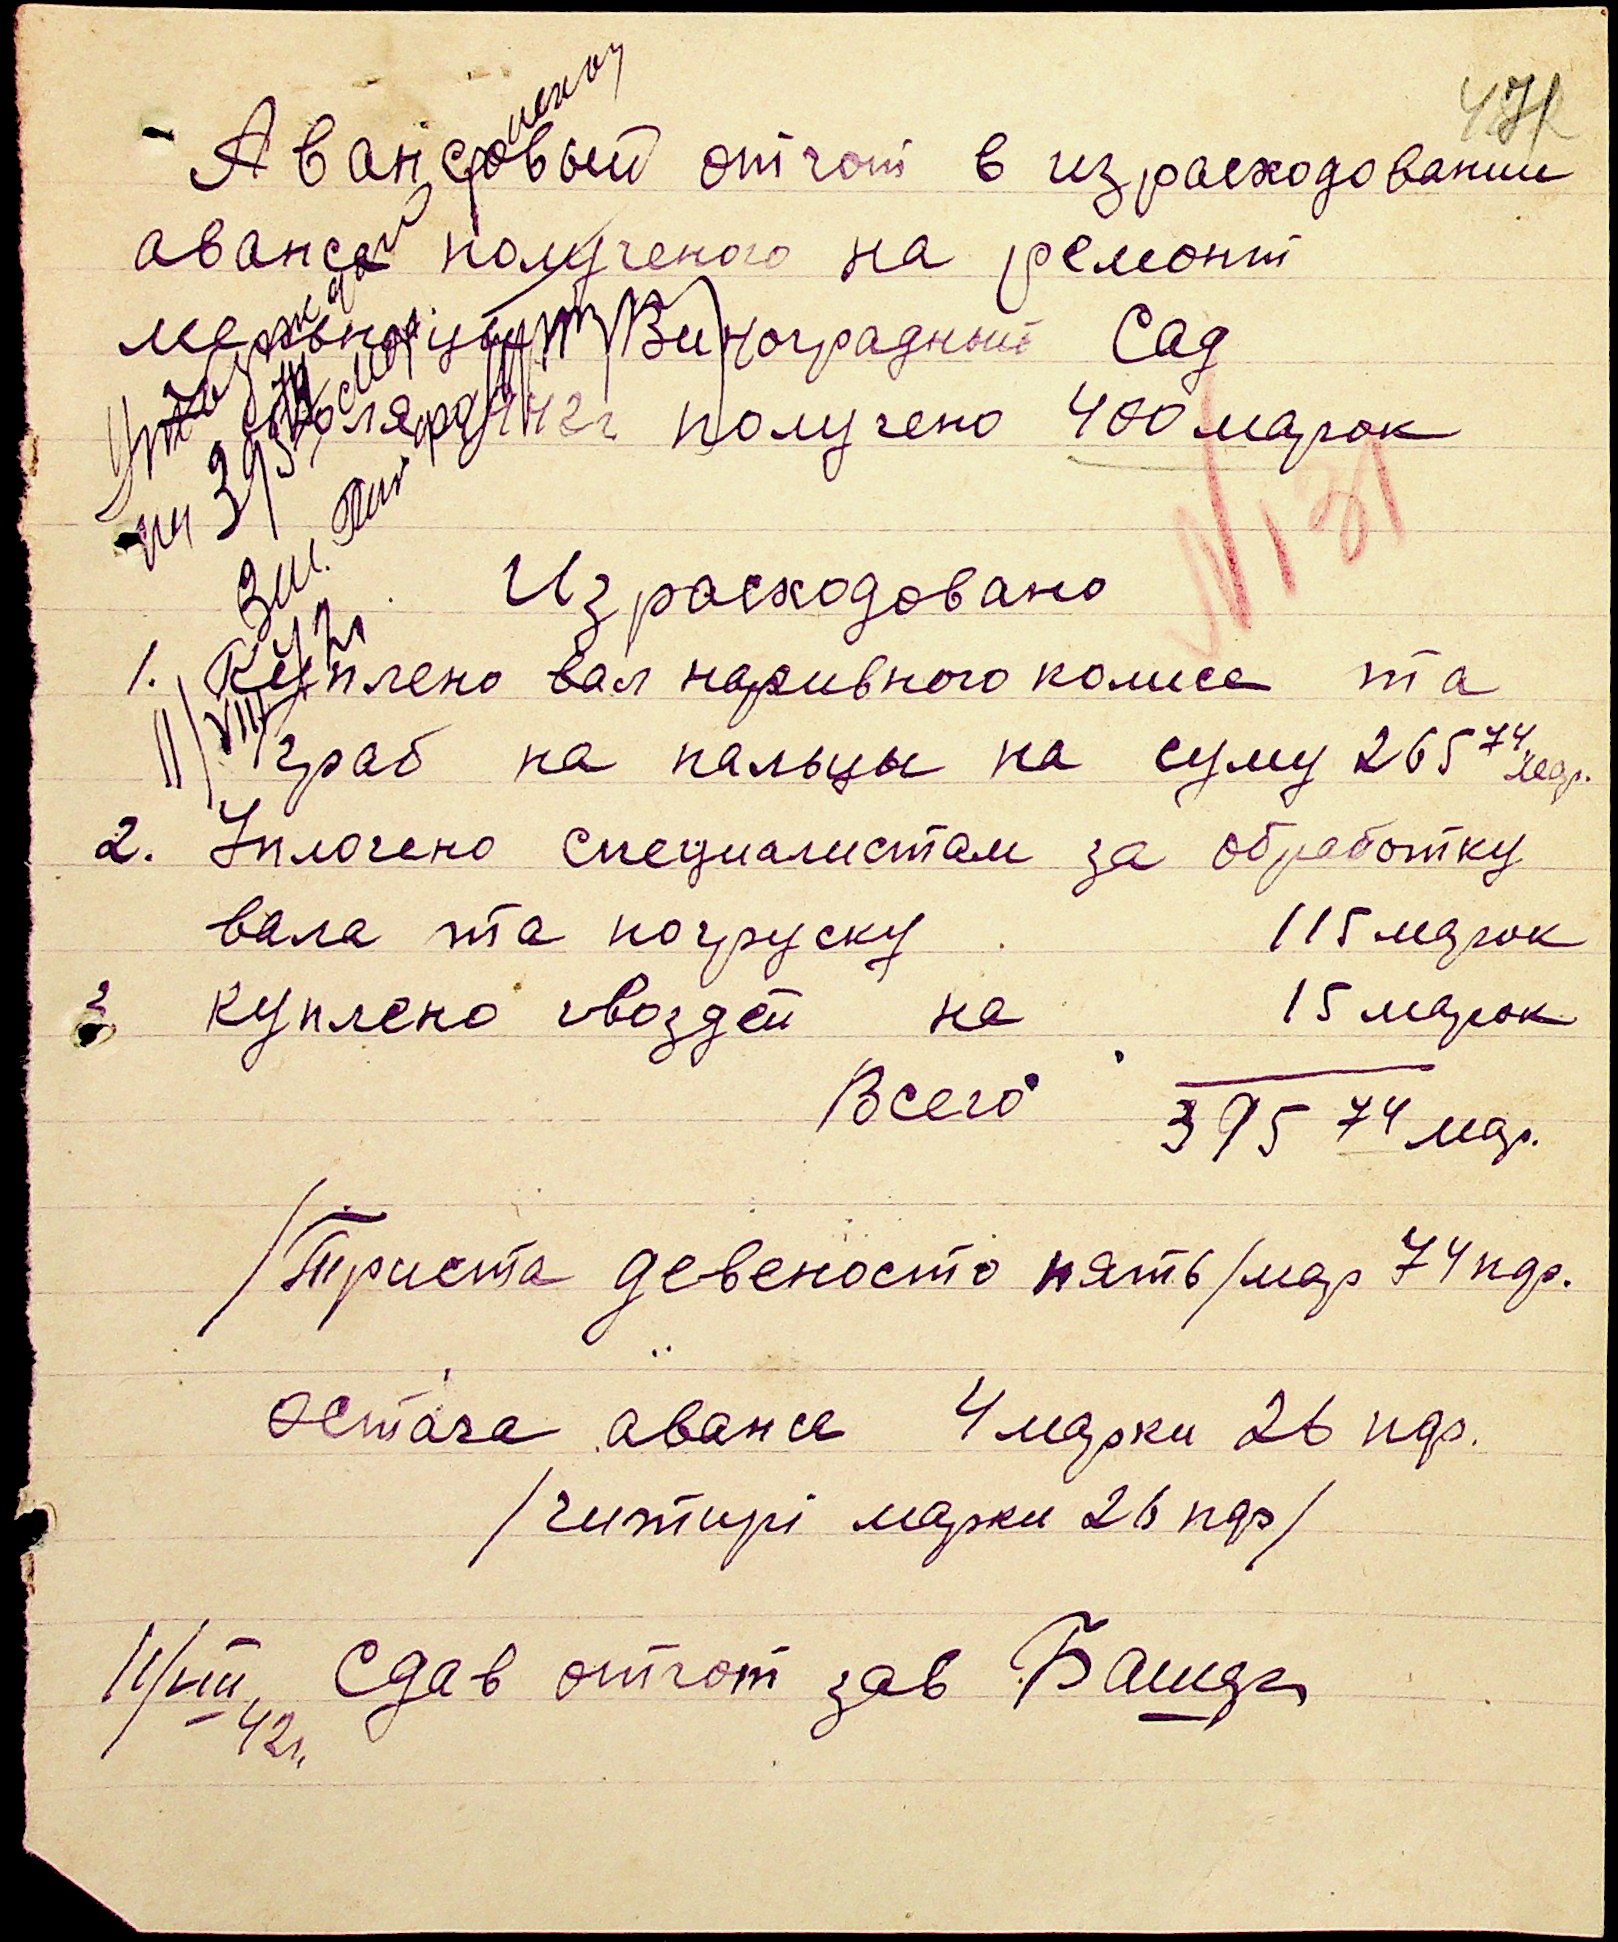 Авансовый отчот в израсходовании
аванса полученого на ремонт
мельницы Виноградный Сад
получено 400 марок
№ 131
Израсходовано
1. Куплено вал наривного колиса та
граб на пальцы на суму 265 74 мар.
2. Уплочено специалистам за обработку
вала та погруску 115 марок
3 куплено гвоздей на 15 марок
Всего 395 74 мар.
/Триста девеносто пять/мар 74 пф.
Остача аванса 4 марки 26 пф.
/читирі марки 26 пф/
11/VIII 42г. Сдав отчот зав